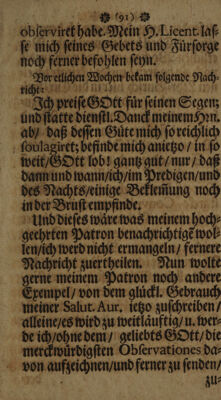 (91)
observiret habe. Mein H. Licent. las-
se mich seines Gebets und Fürsorge
noch ferner befohlen seyn.
Vor etlichen Wochen bekam folgende Nach-
richt:
Ich preise GOtt für seinen Segen,
und statte dienstl. Danck meinem Hn.
ab/ daß dessen Güte mich so reichlich
soulagiret; befinde mich anietzo/ in so
weit/ GOtt lob! gantz gut/ nur/ daß
dann und wann/ ich/ im Predigen/ und
des Nachts/ einige Beklem̄ung noch
in der Brust empfinde.
Und dieses wäre was meinem hoch-
geehrten Patron benachrichtigē wol-
len/ ich werd nicht ermangeln/ fernere
Nachricht zuertheilen. Nun wolte
gerne meinem Patron noch andere
Exempel/ von dem glückl. Gebrauch
meiner Salut. Aur. ietzo zuschreiben/
alleine/ es wird zu weitläuftig/ u. wer-
de ich/ ohne dem/ geliebts GOtt/ die
merckwürdigsten Observationes da-
von aufzeichnen/ und ferner zu senden/
zu-